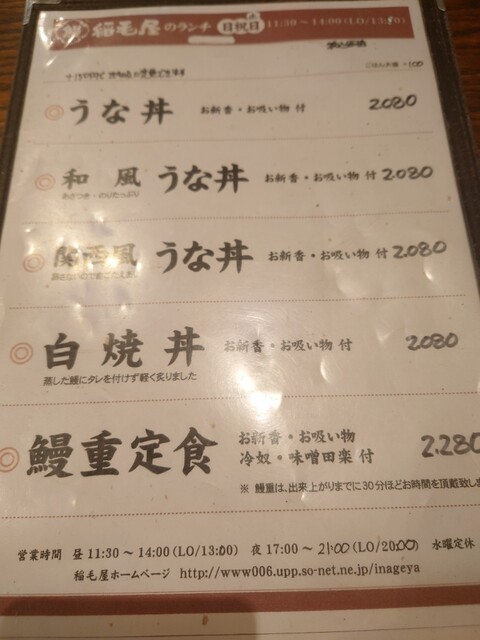 稲毛屋のランチ 日祝日 11:30～14:00(LO/13:30)
ごはん大盛 +100
うな丼 お新香・お吸い物 付 2080
和風 うな丼 お新香・お吸い物 付 2.080
あさつき・のりたっぷり
関西風 うな丼 お新香・お吸い物 付 2.080
白焼丼 お新香・お吸い物 付 2080
蒸した鰻にタレを付けず軽く炙りました
鰻重定食 お新香・お吸い物
冷奴・味噌田楽 付 2.280
※ 鰻重は、出来上がりまでに30分ほどお時間を頂戴致しま
営業時間 昼 11:30～14:00(LO/13:00) 夜 17:00～21:00(LO/20:00) 水曜定休
稲毛屋ホームページ http://www006.upp.so-net.ne.jp/inageya